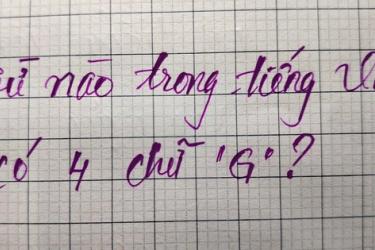 nào trong tiếng
có 4 chữ 'G'?